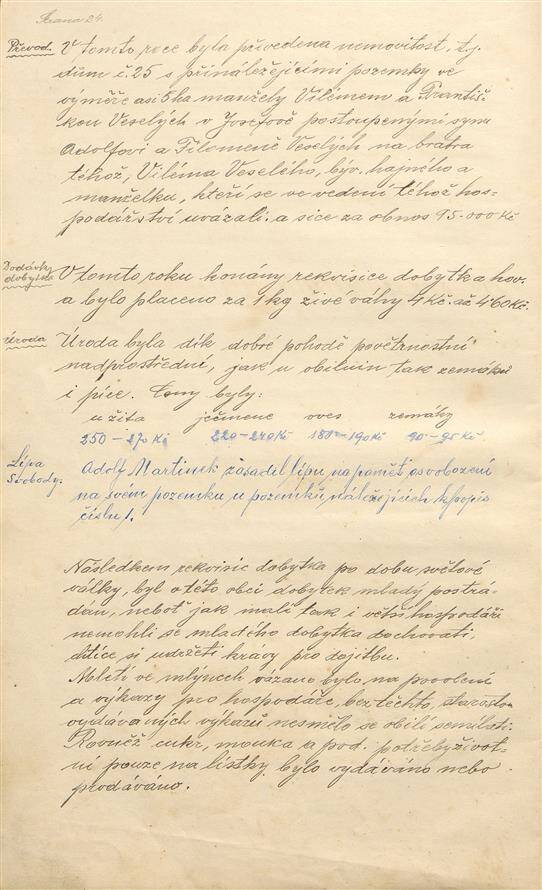 Strana 24.
Převod. V tomto roce byla převedena nemovitost, t.j.
dům č. 25 s přináležejícími pozemky ve
výměře asi 5 ha manžely Vilémem a Františ-
kou Veselých v Josefově postoupenými synu
Adolfovi a Filomeně Veselých na bratra
téhož, Viléma Veselého, býv. hajného a
manželku, kteří se ve vedení téhož hos-
podářství uvázali. a sice za obnos 95.000 Kč
Dodávky dobytka V tomto roku konány rekvisice dobytka hov.
a bylo placeno za 1 kg živé váhy 4 Kč. až 4.60 Kč.
Úroda Úroda byla dík dobré pohodě povětrnostní
nadprostřední, jak u obilnin tak zemáků
i píce. Ceny byly:
u žita ječmene oves zemáky
250 – 270 Kč 220 – 240 Kč 180 – 190 Kč 90 – 95 Kč
Lípa Svobody. Adolf Martinek zasadil lípu na paměť osvobození
na svém pozemku u pozemků náležejících k popis
číslu 1.
Následkem rekvisic dobytka po dobu světové
války, byl v této obci dobytek mladý postrá-
dán, neboť jak malí tak i větší hospodáři
nemohli se mladého dobytka dochovati,
chtíce si udržeti krávy pro dojitbu.
Mletí ve mlýnech vázáno bylo na povolení
a výkazy pro hospodáře, bez těchto, starostou
vydávaných výkazů nesmělo se obilí semílati.
Rovněž cukr, mouka a pod. potřeby život-
ní pouze na lístky bylo vydáváno nebo
prodáváno.